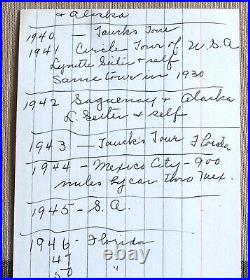 & Alaska
1940 - Taucks Tour
1941 Circle Tour of U.S.A
Lynette Seiter & self
Same tour in 1930
1942 Saguenay & Alaska
L Seiter & self
1943 - Taucks Tour Florida
1944 - Mexico City - 900
miles by car thru Mex.
1945 - S.A.
1946 - Florida
47 "
50 "